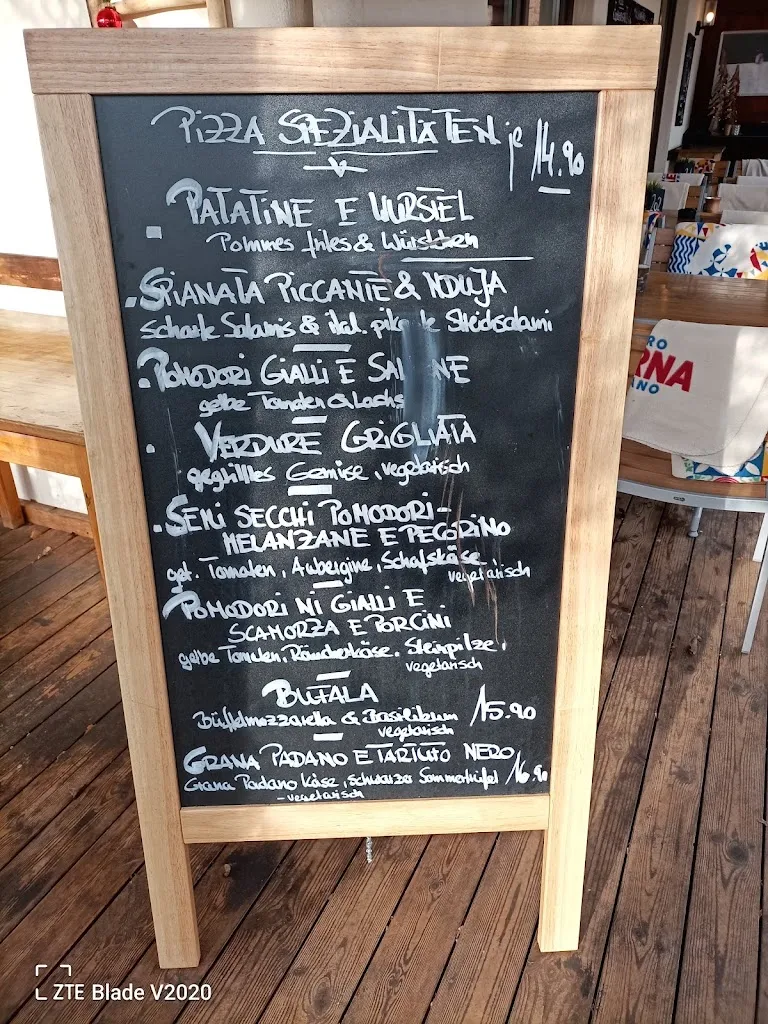 Pizza Spezialitäten je 14.90
Patatine e Wurstel
Pommes frites & Würstchen
Spianata Piccante & Nduja
scharfe Salamis & ital. pikante Streichsalami
Pomodori Gialli e Salmone
gelbe Tomaten & Lachs
Verdure Grigliata
gegrilltes Gemüse, vegetarisch
Semi Secchi Pomodori-
Melanzane e Pecorino
get. Tomaten, Aubergine, Schafskäse
vegetarisch
Pomodorini Gialli e
Scamorza e Porcini
gelbe Tomaten, Räucherkäse, Steinpilze,
vegetarisch
Bufala
Büffelmozzarella & Basilikum 15.90
vegetarisch
Grana Padano e Tartufo Nero
Grana Padano Käse, schwarzer Sommertrüffel 16.90
- vegetarisch
RNA
ANO
ZTE Blade V2020